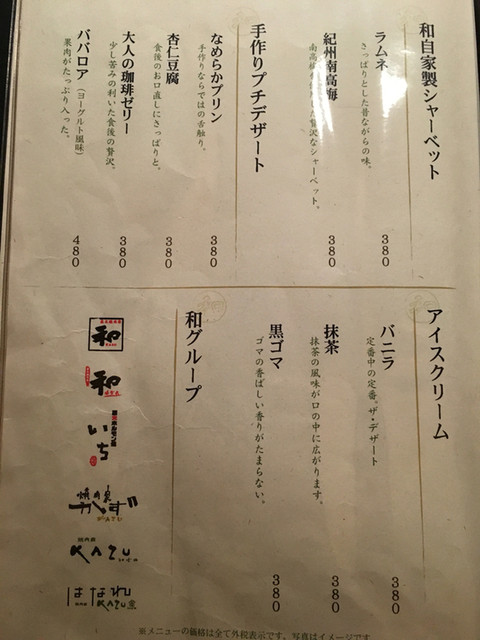 和自家製シャーベット
ラムネ
さっぱりとした昔ながらの味。
380
紀州南高梅
南高梅
贅沢なシャーベット。
380
手作りプチデザート
なめらかプリン
手作りならではの舌触り。
380
杏仁豆腐
食後のお口直しにさっぱりと。
380
大人の珈琲ゼリー
少し苦みの利いた食後の贅沢。
380
ババロア（ヨーグルト風味）
果肉がたっぷり入った。
480
アイスクリーム
バニラ
定番中の定番。ザ・デザート
380
抹茶
抹茶の風味が口の中に広がります。
380
黒ゴマ
ゴマの香ばしい香りがたまらない。
380
和グループ
和
和
いち
焼肉家
かず
KAZU
はなれ
KAZU
※メニューの価格は全て外税表示です。写真はイメージです